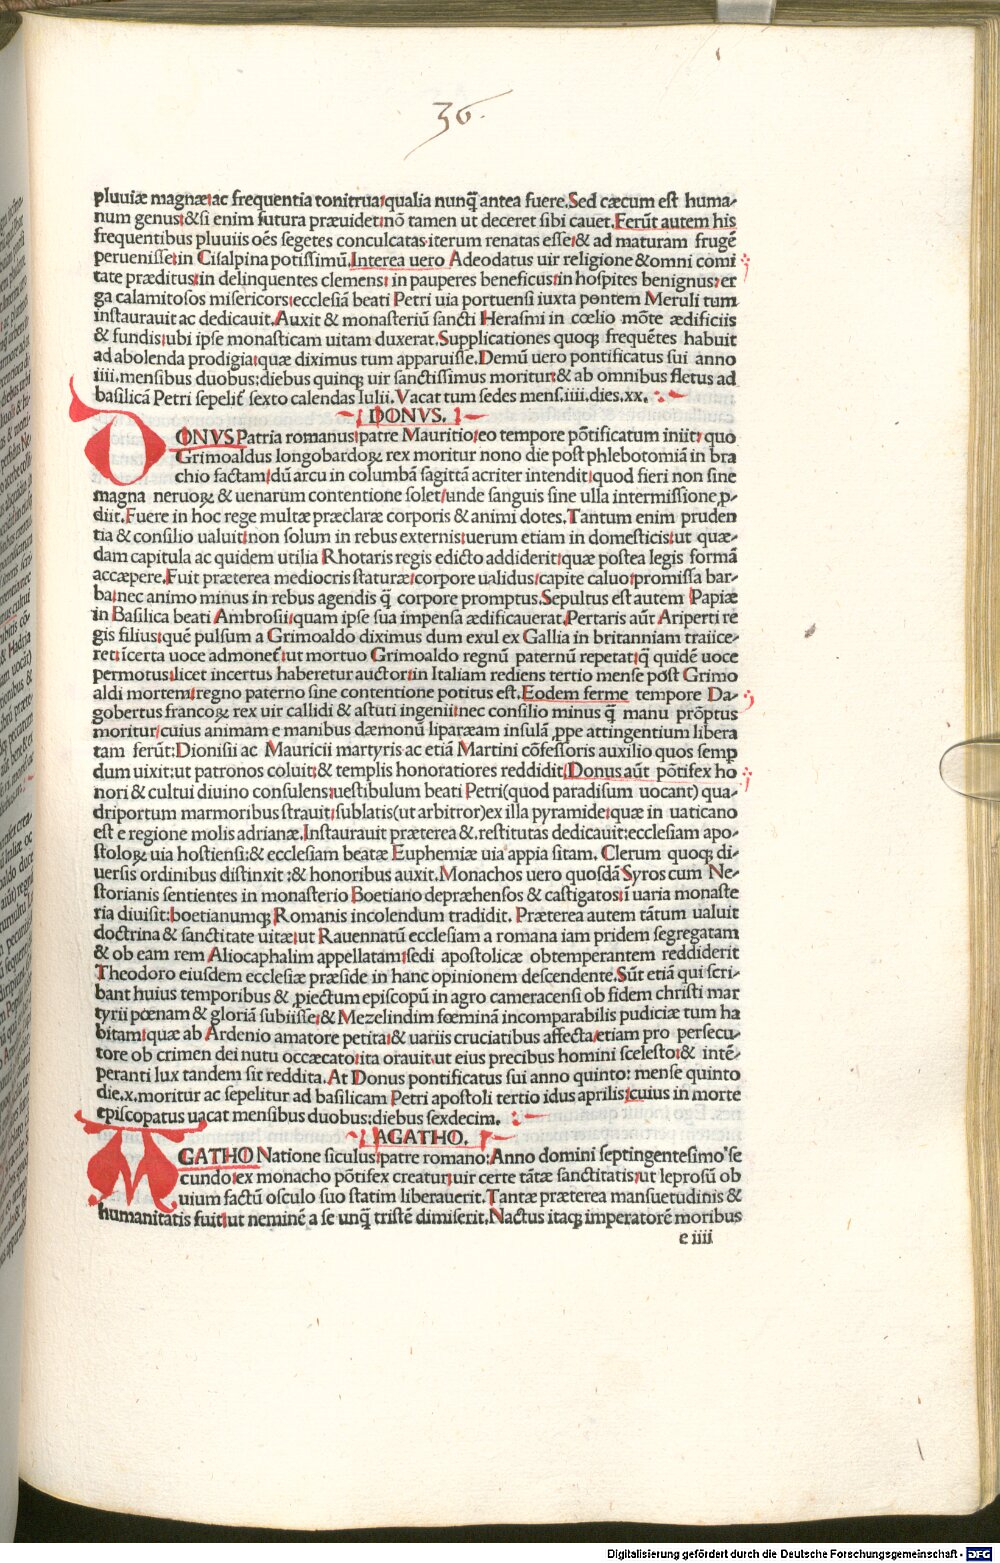 36.
pluuiæ magnæ:ac frequentia tonitrua:qualia nunq̃ antea fuere.Sed cæcum est huma-
num genus:&si enim futura præuidet:nō tamen ut deceret sibi cauet.Ferūt autem his
frequentibus pluuiis oēs segetes conculcatas:iterum renatas esse:& ad maturam frugē
peruenisse:in Cisalpina potissimū.Interea uero Adeodatus uir religione &omni comi
tate præditus:in delinquentes clemens: in pauperes beneficus:in hospites benignus:er
ga calamitosos misericors:ecclesiā beati Petri uia portuensi iuxta pontem Meruli tum
instaurauit ac dedicauit.Auxit & monasteriū sancti Herasmi in cœlio mōte ædificiis
& fundis:ubi ipse monasticam uitam duxerat.Supplicationes quoqꝫ frequētes habuit
ad abolenda prodigia:quæ diximus tum apparuisse.Demū uero pontificatus sui anno
iiii.mensibus duobus:diebus quinqꝫ uir sanctissimus moritur:& ab omnibus fletus ad
basilicā Petri sepelit᷑ sexto calendas Iulii.Vacat tum sedes mens.iiii.dies.xx.
DONVS.
DONVS Patria romanus:patre Mauritio:eo tempore pōtificatum iniit: quo
Grimoaldus longobardoꝝ rex moritur nono die post phlebotomiā in bra
chio factam:dū arcu in columbā sagittā acriter intendit:quod fieri non sine
magna neruoꝝ & uenarum contentione solet:unde sanguis sine ulla intermissione ꝓ-
diit.Fuere in hoc rege multæ præclaræ corporis & animi dotes.Tantum enim pruden
tia & consilio ualuit:non solum in rebus externis:uerum etiam in domesticis:ut quæ-
dam capitula ac quidem utilia Rhotaris regis edicto addiderit:quæ postea legis formā
accæpere.Fuit præterea mediocris staturæ:corpore ualidus:capite caluo:promissa bar-
ba:nec animo minus in rebus agendis q̃ corpore promptus.Sepultus est autem Papiæ
in Basilica beati Ambrosii:quam ipse sua impensa ædificauerat.Pertaris aūt Ariperti re
gis filius:quē pulsum a Grimoaldo diximus dum exul ex Gallia in britanniam traiice-
ret:icerta uoce admonet᷑:ut mortuo Grimoaldo regnū paternū repetat:q̃ quidē uoce
permotus:licet incertus haberetur auctor:in Italiam rediens tertio mense post Grimo
aldi mortem:regno paterno sine contentione potitus est.Eodem ferme tempore Da-
gobertus francoꝝ rex uir callidi & astuti ingenii:nec consilio minus q̃ manu prōptus
moritur:cuius animam e manibus dæmonū liparæam insulā ꝓpe attingentium libera
tam ferūt:Dionisii ac Mauricii martyris ac etiā Martini cōfessoris auxilio quos semp
dum uixit:ut patronos coluit:& templis honoratiores reddidit.Donus aūt pōtifex ho
nori & cultui diuino consulens:uestibulum beati Petri(quod paradisum uocant) qua-
driportum marmoribus strauit:sublatis(ut arbitror)ex illa pyramide:quæ in uaticano
est e regione molis adrianæ.Instaurauit præterea &.restitutas dedicauit:ecclesiam apo-
stoloꝝ uia hostiensi:& ecclesiam beatæ Euphemiæ uia appia sitam. Clerum quoqꝫ di-
uersis ordinibus distinxit:& honoribus auxit.Monachos uero quosdā Syros cum Ne-
storianis sentientes in monasterio Boetiano depræhensos & castigatos:i uaria monaste
ria diuisit:boetianumqꝫ Romanis incolendum tradidit. Præterea autem tātum ualuit
doctrina & sanctitate uitæ:ut Rauennatū ecclesiam a romana iam pridem segregatam
& ob eam rem Aliocaphalim appellatam:sedi apostolicæ obtemperantem reddiderit
Theodoro eiusdem ecclesiæ præside in hanc opinionem descendente.Sūt etiā qui scri-
bant huius temporibus & ꝓiectum episcopū in agro cameracensi ob fidem christi mar
tyrii pœnam & gloriā subiisse:& Mezelindim fœminā incomparabilis pudiciæ tum ha
bitam:quæ ab Ardenio amatore petita:& uariis cruciatibus affecta:etiam pro persecu-
tore ob crimen dei nutu occæcato:ita orauit:ut eius precibus homini scelesto:& intē-
peranti lux tandem sit reddita.At Donus pontificatus sui anno quinto: mense quinto
die.x.moritur ac sepelitur ad basilicam Petri apostoli tertio idus aprilis:cuius in morte
episcopatus uacat mensibus duobus:diebus sexdecim.
AGATHO.
AGATHO Natione siculus:patre romano:Anno domini septingentesimo se
cundo:ex monacho pōtifex creatur:uir certe tātæ sanctitatis:ut leprosū ob
uium factū osculo suo statim liberauerit.Tantæ præterea mansuetudinis &
humanitatis fuit:ut neminē a se unq̃ tristē dimiserit.Nactus itaqꝫ imperatorē moribus
e iiii
Digitalisierung gefördert durch die Deutsche Forschungsgemeinschaft - DFG